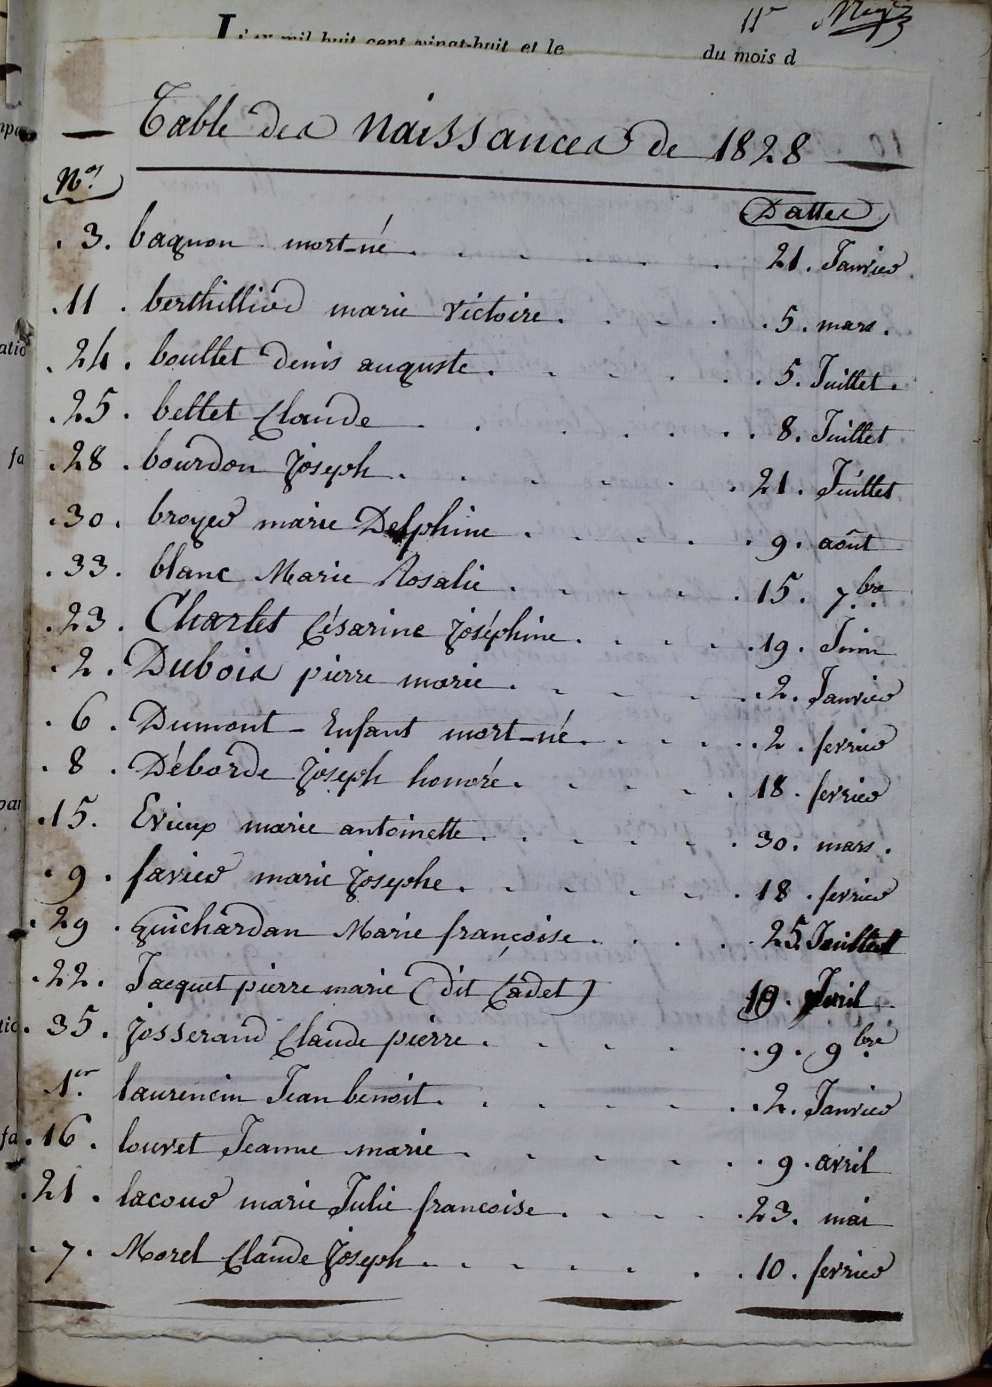 L'an mil huit cent vingt-huit et le
du mois d
Table des Naissances de 1828
Nos
Dattes
3. bagnon mort-né 21. Janvier
11. berthillier marie victoire 5. mars
24. boullet denis auguste 5. Juillet
25. bellet Claude 8. Juillet
28. bourdon Joseph 21. Juillet
30. broyer marie Delphine 9. août
33. blanc Marie Rosalie 15. 7bre
23. Charlet Césarine Joséphine 19. Juin
2. Dubois pierre marie 2. Janvier
6. Dumont - Enfant mort-né 2. fevrier
8. Déborde Joseph honoré 18. fevrier
15. Evieux marie antoinette 30. mars
9. favier marie Josephe 18. fevrier
29. guichardan Marie françoise 25. Juillet
22. Jacquet pierre marie (dit Cadet) 19. Avril
35. Josserand Claude pierre 9. 9bre
1er laurencin Jean benoit 2. Janvier
16. louvet Jeanne marie 9. avril
21. lacour marie Julie francoise 23. mai
7. Morel Claude Joseph 10. fevrier